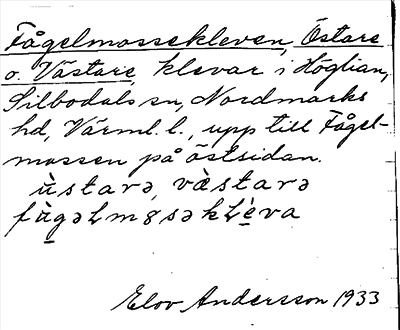 Fågelmossekleven, Östare
o. Västare, klevar i Höglian,
Silbodals sn, Nordmarks
hd, Värml. l., upp till Fågel-
mossen på östsidan.
ùstarə, və̀starə
fùgəLm8səkLèva
Elov Andersson 1933